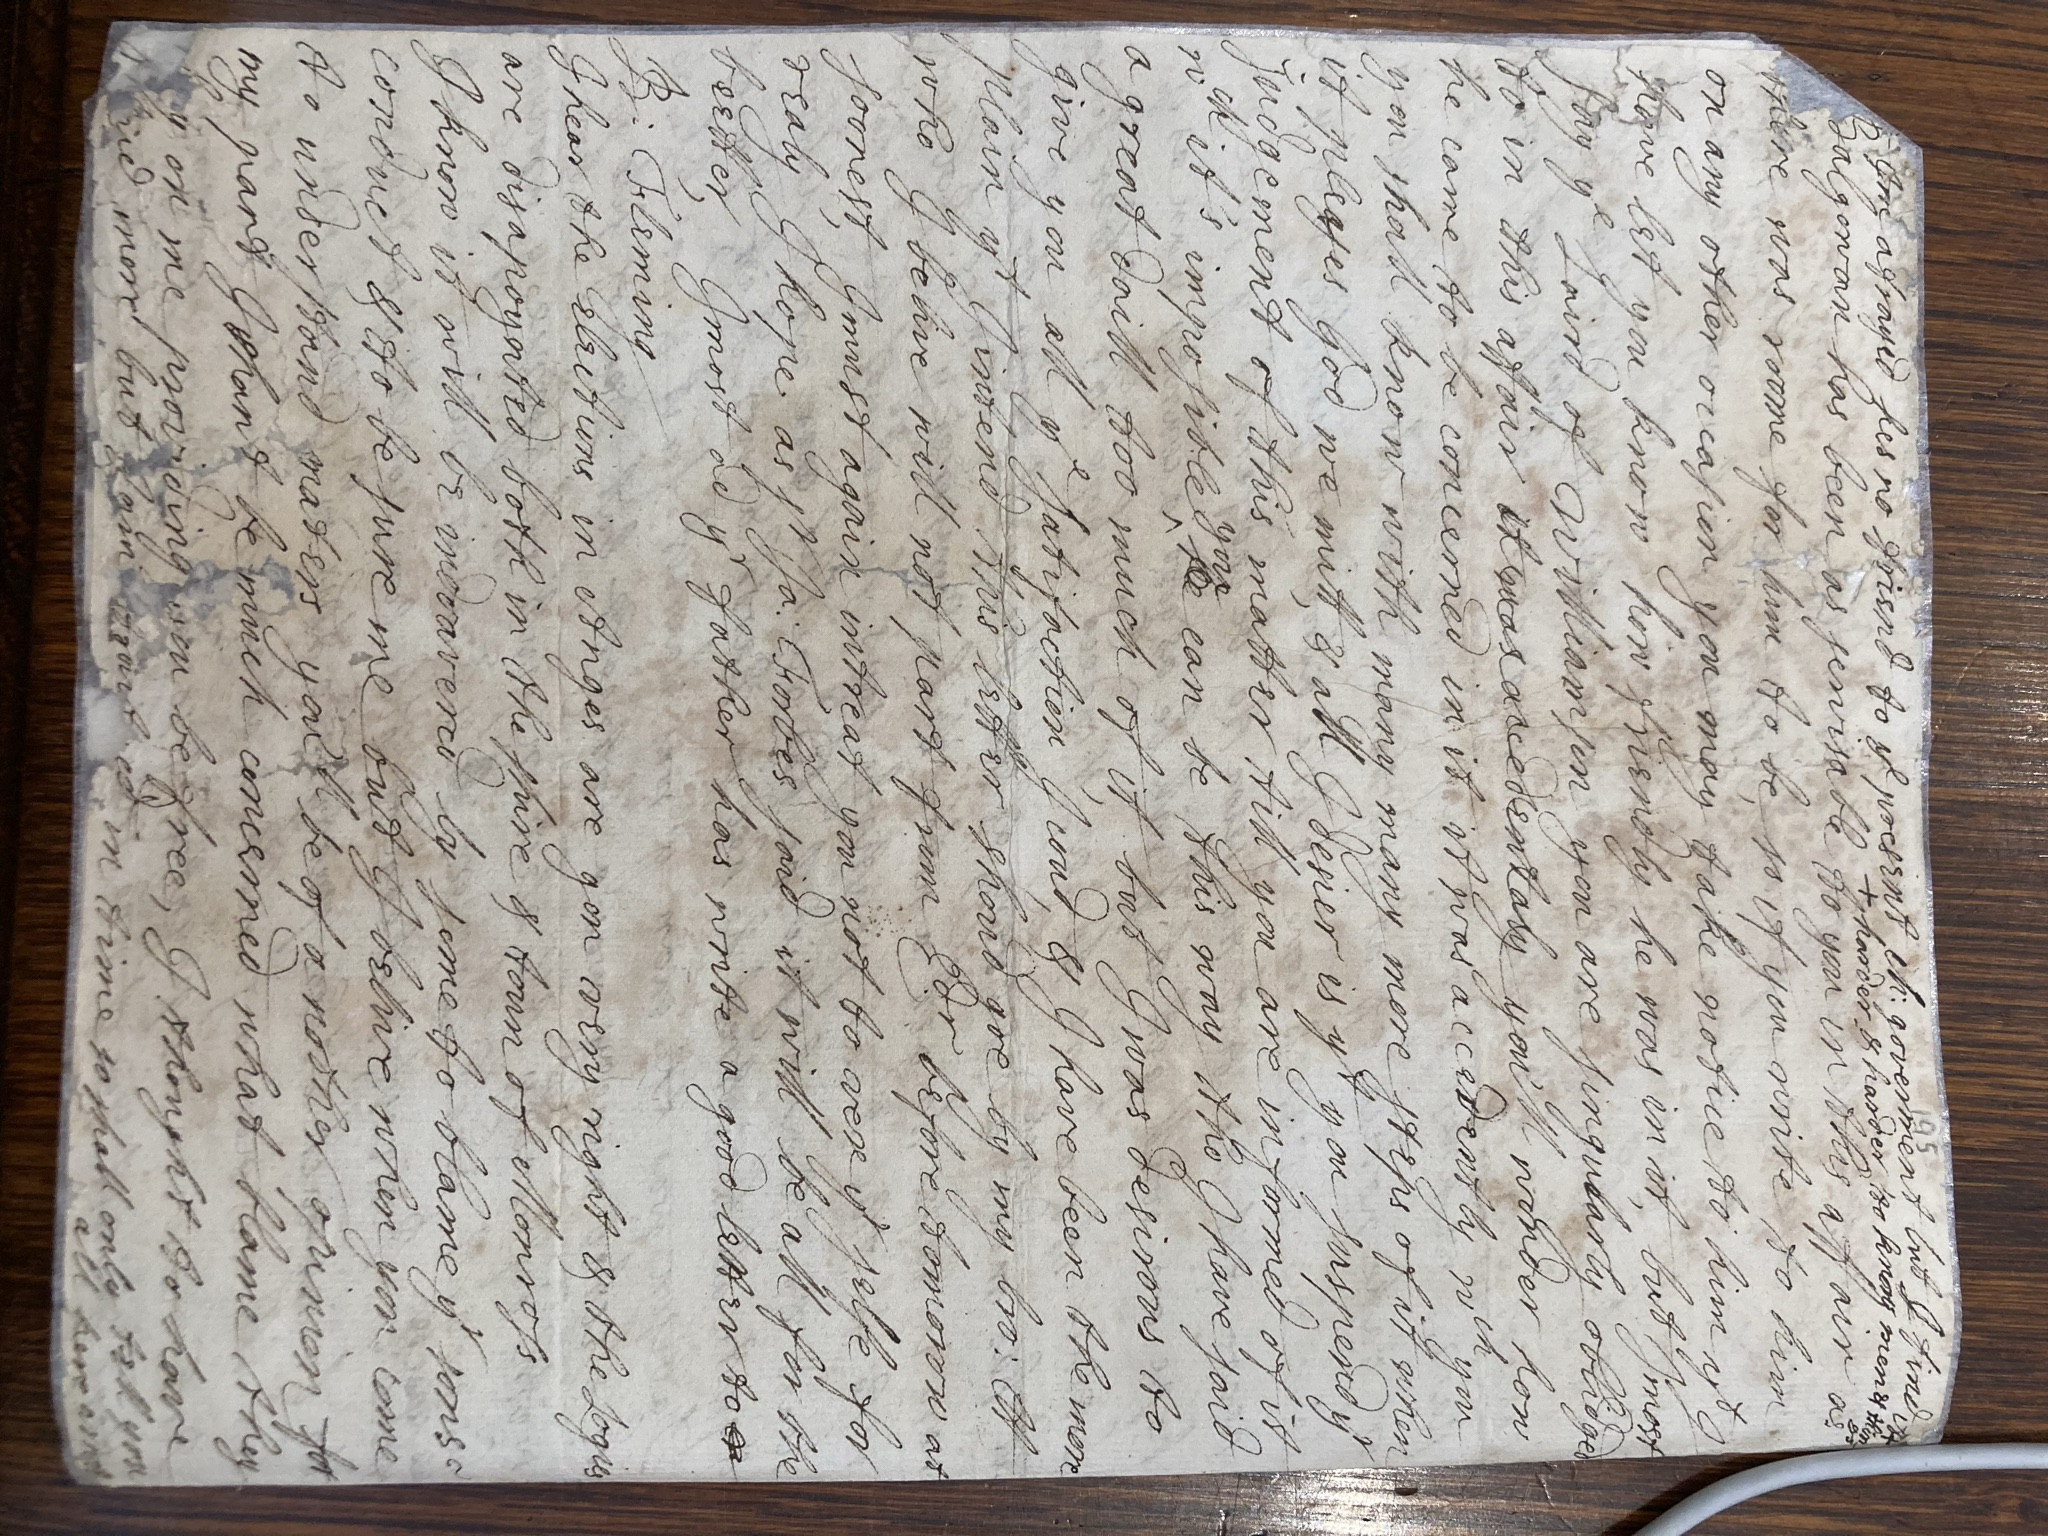 195
+ Ime afrayed hes no friend to ye present ch: goverment but I find it
+ harder & harder to know men & things
Balgowan has been as servisable to you in this affair as
there was roome for him to be, so if you write to him
on any other occasion you may take notice to him yt I
have let you know how friendly he was in it, but I most
say ye Laird of Williamson you are singularly oblidged
to in this affair it was accedentaly you'll wonder how
he came to be concerned in it it was accedently wch you
you shall know with many many more steps of it when
it pleases God we mitt, & all I desier is yt you suspend yr
judgement of this matter till you are informed of it
wch it's imposible you can be this way tho I have said
a great daill too much of it, but I was desirous to
give you all ye satifaction I coud, & I have been the more
plain yt I intend this letter shoud goe by my bro: A
who I belive will not part from Edr before tomorow at
soonest, I must again intreat you not to vexe yr selfe for
realy I hope as sr Ja: Forbes said it will be all for the
beetter, I most ad yr father has write a good letter to
B: Fleming
I hear the elections in Anges are gon very right & the Logies
are disapoynted both in the shire & toun of Monross
I know it will be indoavered by some to blame yr sons
conduct & to be sure me but I belive when you come
to understand maters you'll be of a nother opinion for
my part I shant be much concerned what blame they
lay on me providing you be free, I thought to have
said more but I am in time so shall only tell you
all here are